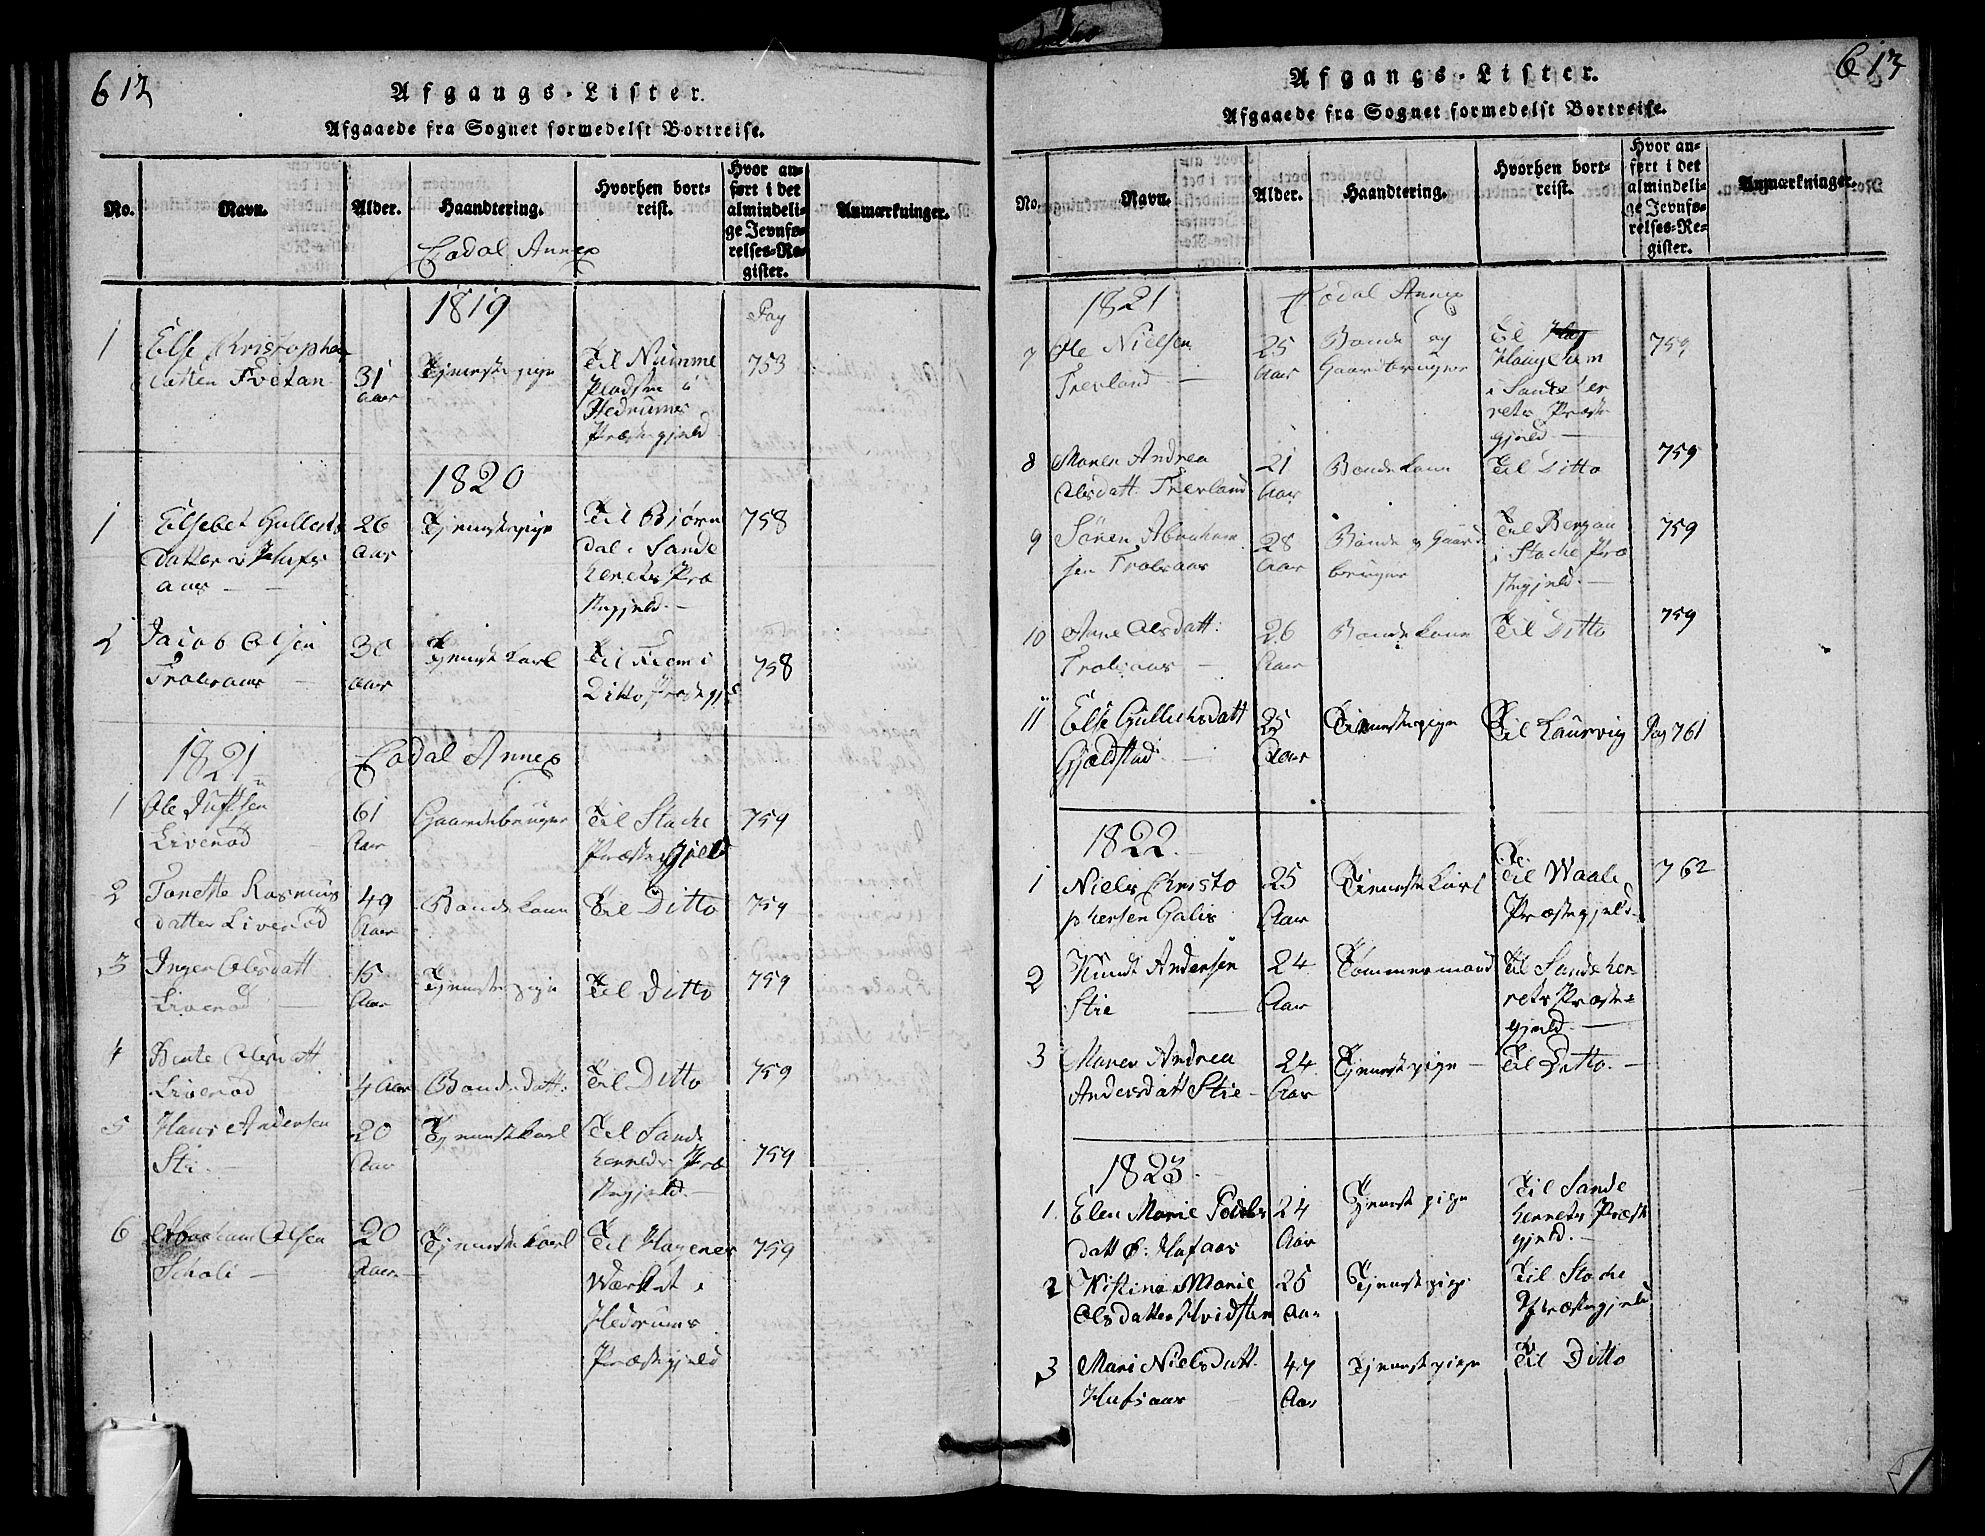 612
Afgangs-Lister.
Afgaaede fra Sognet formedelst Bortreise.
No.
Navn.
Alder.
Haandtering.
Hvorhen bort-
reist.
Hvor an-
ført i det
almindeli-
ge Jevnfø-
relses-Re-
gister.
Anmærkninger.
Annex
1819
Pag
1
Else Christopher
datter
31
aar
Tjenestepige
Til
Pladsen i
Hedrums
Præstegjeld
753
1820
1
Elsebet
datter
26
aar
Tjenestepige
Til Bjørn
dal i Sande
herets Præ
stegjeld.
758
2
Jacob Olsen
30
aar
Tjenestekarl
Til
Ditto Præstegjeld
758
1821
Annex
1
Ole
Liverød
61
Aar
Gaardebruger
Til Stocke
Præstegjeld
759
2
Tonette Rasmus
datter Liverød
49
Aar
Bondekone
Til Ditto
759
3
Inger Olsdatt
Liverød
15
Aar
Tjenestepige
Til Ditto
759
4
Bente Olsdatt
Liverød
4 Aar
Bondedatt:
Til Ditto
759
5
Hans Andersen
Sti.
20
Aar
Tjenestekarl
Til Sande
herreds Præ
stegjeld.
759
6
Abraham Olsen
Skoli
20
Aar
Tjenestekarl
Til Hagenes
Værket i
Hedrums
Præstegjeld
759
613
Afgangs-Lister.
Afgaaede fra Sognet formedelst Bortreise.
No.
Navn.
Alder.
Haandtering.
Hvorhen bort-
reist.
Hvor an-
ført i det
almindeli-
ge Jevnfø-
relses-Re-
gister.
Anmærkninger.
1821
Annex
7
Ole Nielsen
Trevland
25
Aar
Bonde og
Gaardbruger
Til
Haughem
i Sandeher
rets Præste
gjeld
759
8
Maren Andrea
Olsdatt. Trevland
21
Aar
Bondekone
Til Ditto
759
9
Sören Abraham
sen
28
Aar
Bonde og Gaard
bruger
Til Bergan
i Stocke Præ
stegjeld.
759
10
Anne Olsdatt:
26
Aar
Bondekone
Til Ditto
759
11
Else Gulliksdatt
Gjældstad
25
Aar
Tienestepige
Til Laurvig
Pag 761
1822
1
Niels Christo
phersen
25
Aar
Tienestekarl
Til Waale
Præstegjeld.
762
2
Knudt Andersen
Stie
24
Aar
Tömmermand
Til Sandeher
rets Præste
gjeld.
3
Maren Andrea
Andersdatt Stie
24
Aar
Tjenestepige
Til Ditto.
1823
1.
Elen Marie
datt
24
Aar
Tjenestepige
Til Sande
herrets Præste
gjeld.
2
Kistine Marie
Olsdatter Hvidsten
25
Aar
Tjenestepige
Til Stocke
Præstegjeld
3
Mari Nielsdatt.
47
Aar
Tjenestepige
Til Ditto